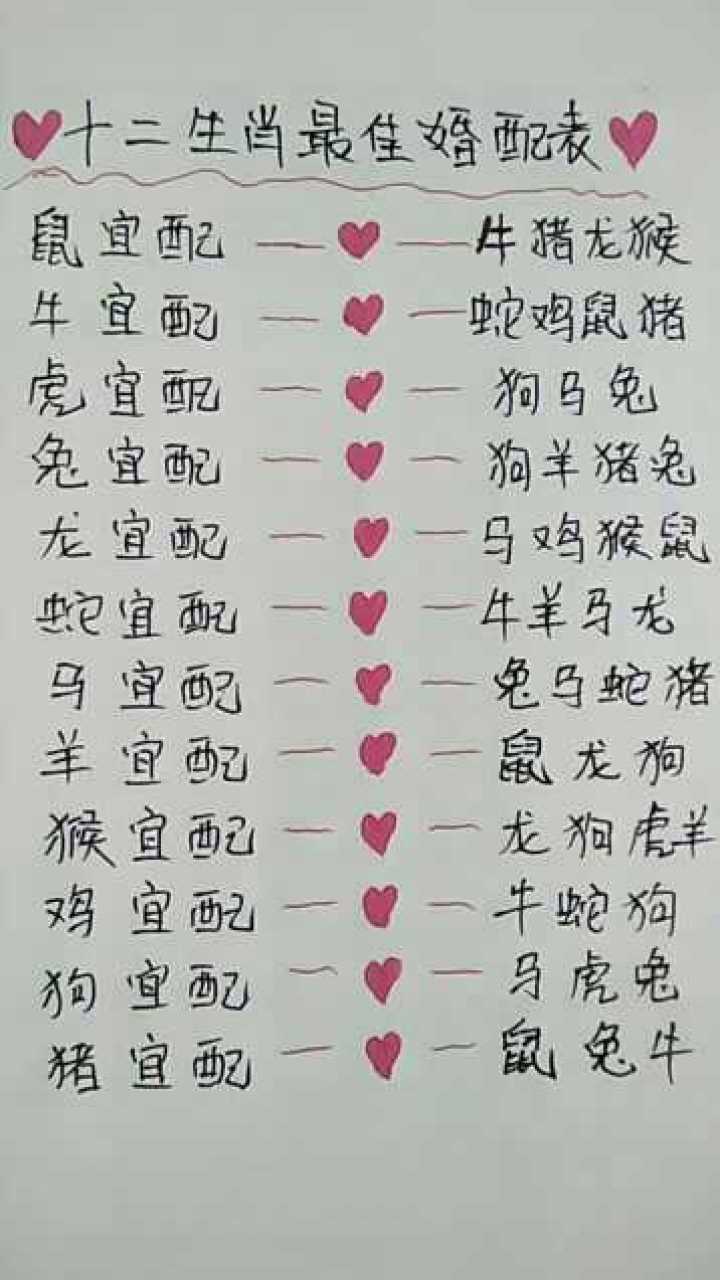 十二生肖最佳婚配表
鼠宜配 牛猪龙猴
牛宜配 蛇鸡鼠猪
虎宜配 狗马兔
兔宜配 狗羊猪兔
龙宜配 马鸡猴鼠
蛇宜配 牛羊马龙
马宜配 兔马蛇猪
羊宜配 鼠龙狗
猴宜配 龙狗虎羊
鸡宜配 牛蛇狗
狗宜配 马虎兔
猪宜配 鼠兔牛